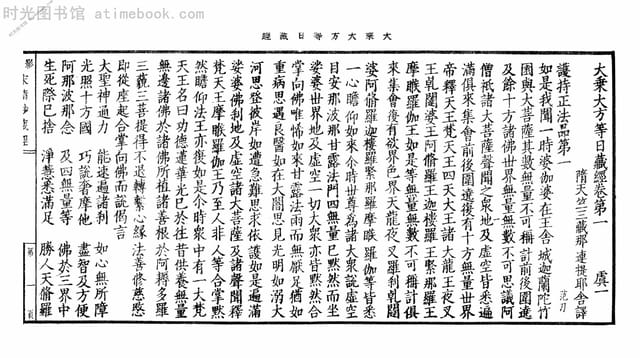 时光图书馆 - atimebook.com
大乘大方等日藏經
大乘大方等日藏經卷第一 虞一
隋天竺三藏那連提耶舍譯
護持正法品第一
如是我聞一時婆伽婆在王舍城迦蘭陀竹
園與大菩薩其數無量不可稱計前後圍遶
及餘十方諸佛世界無量無數不可思議阿
僧祇諸大菩薩聲聞之衆地及虛空皆悉遍
滿俱來集會前後圍遶復有十方無量世界
帝釋天王梵天王四天大王諸大龍王夜叉
王乾闥婆王阿脩羅王迦樓羅王緊那羅王
摩睺羅伽王如是等無量無數不可稱計俱
來集會復有欲界色界天龍夜叉羅刹乾闥
婆阿脩羅迦樓羅緊那羅摩睺羅伽等皆悉
一心瞻仰如來尒時世尊為諸大衆說虛空
目安那波那甘露法門四無量已默然而坐
娑婆世界地及虛空一切大衆亦皆默然合
掌向佛唯怖如來甘露法雨而無厭足猶如
重病思遇良醫如在大闇思見光明如溺大
河思登彼岸如遭急難思求依護如是遍滿
娑婆佛刹地及虛空諸大菩薩及諸聲聞釋
梵天王摩睺羅伽王乃至人非人等合掌默
然瞻仰法王亦復如是尒時衆中有一大梵
天王名曰功德蓮華光已於往昔供養無量
無邊諸佛於諸佛所植諸善根於阿耨多羅
三藐三菩提得不退轉繫心緣法善修慈愍
即從座起合掌向佛而說偈言
大聖神通力 能速遍諸刹 如心無所障
光照十方國 巧說奢摩他 盡智及方便
阿那波那念 及四無量等 佛於三界中
生死際已捨 淨慧悉滿足 勝人天脩羅
影宋磧砂藏經
第一頁